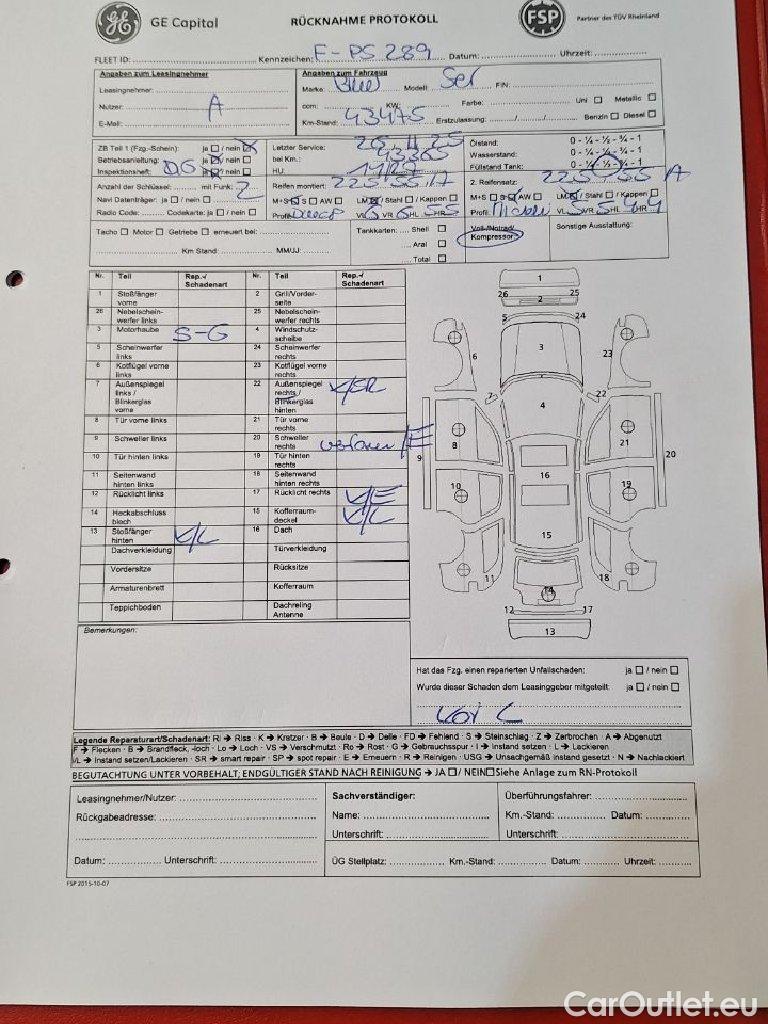 GE Capital RÜCKNAHME PROTOKOLL FSP Partner des TÜV Rheinland
FLEET ID: Kennzeichen: F-PS 289 Datum: Uhrzeit:
Angaben zum Leasingnehmer Angaben zum Fahrzeug
Leasingnehmer: Marke: Modell: 5er FIN:
Nutzer: A ccm: KW: Farbe: Uni Metallic
E-Mail: Km-Stand: 43475 Erstzulassung: Benzin Diesel
ZB Teil 1 (Fzg.-Schein): ja / nein Letzter Service: Ölstand: 0 - ¼ - ½ - ¾ - 1
Betriebsanleitung: ja / nein bei Km.: Wasserstand: 0 - ¼ - ½ - ¾ - 1
Inspektionsheft: ja / nein HU: Füllstand Tank: 0 - ¼ - ½ - ¾ - 1
Anzahl der Schlüssel: mit Funk: 2 Reifen montiert: 225 55 17 2. Reifensatz: 225 55
Navi Datenträger: ja / nein M+S S AW LM / Stahl ( / Kappen ) M+S S AW LM / Stahl ( / Kappen )
Radio Code: Codekarte: ja / nein Profil: VL 6 VR 6 HL 5 HR 5 Profil: VL 5 VR 5 HL 4 HR 4
Tacho Motor Getriebe erneuert bei: Tankkarten: Shell Voll-/Notrad/ Sonstige Ausstattung:
Km Stand: MM/JJ: Aral Kompressor:
Total
Nr. Teil Rep.-/ Schadenart Nr. Teil Rep.-/ Schadenart
1 Stoßfänger vorne 2 Grill/Vorderseite
26 Nebelscheinwerfer links 25 Nebelscheinwerfer rechts
3 Motorhaube S-G 4 Windschutzscheibe
5 Scheinwerfer links 24 Scheinwerfer rechts
6 Kotflügel vorne links 23 Kotflügel vorne rechts
7 Außenspiegel links / Blinkerglas vorne 22 Außenspiegel rechts / Blinkerglas hinten K/SR
8 Tür vorne links 21 Tür vorne rechts
9 Schweller links 20 Schweller rechts verloren /E
10 Tür hinten links 19 Tür hinten rechts
11 Seitenwand hinten links 18 Seitenwand hinten rechts
12 Rücklicht links 17 Rücklicht rechts K/E
14 Heckabschlussblech 15 Kofferraumdeckel K/L
13 Stoßfänger hinten K/L 16 Dach
Dachverkleidung Türverkleidung
Vordersitze Rücksitze
Armaturenbrett Kofferraum
Teppichboden Dachreling Antenne
1
26 25
2
5 24
6 3 23
7 22
4
8 21
9 20
10 16 19
15
11 18
14
12 17
13
Bemerkungen:
Hat das Fzg. einen reparierten Unfallschaden: ja / nein
Wurde dieser Schaden dem Leasinggeber mitgeteilt: ja / nein
Legende Reparaturart/Schadenart: RI → Riss · K → Kratzer · B → Beule · D → Delle · FD → Fehlend · S → Steinschlag · Z → Zerbrochen · A → Abgenutzt
F → Flecken · B → Brandfleck, -loch · Lo → Loch · VS → Verschmutzt · Ro → Rost · G → Gebrauchsspur · I → Instand setzen · L → Lackieren
I/L → Instand setzen/Lackieren · SR → smart repair · SP → spot repair · E → Erneuern · R → Reinigen · USG → Unsachgemäß instand gesetzt · N → Nachlackiert
BEGUTACHTUNG UNTER VORBEHALT; ENDGÜLTIGER STAND NACH REINIGUNG → JA / NEIN Siehe Anlage zum RN-Protokoll
Leasingnehmer/Nutzer: Sachverständiger: Überführungsfahrer:
Rückgabeadresse: Name: Km.-Stand: Datum:
Unterschrift: Unterschrift:
Datum: Unterschrift: ÜG Stellplatz: Km.-Stand: Datum: Uhrzeit:
FSP 2015-10-07
CarOutlet.eu